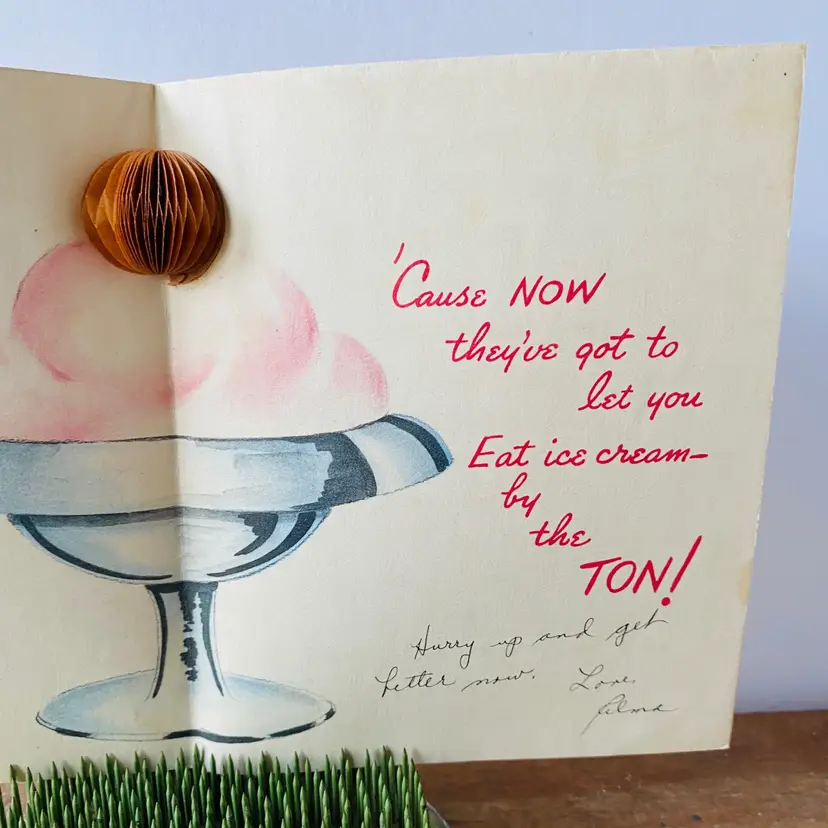 'Cause NOW
they've got to
let you
Eat ice cream-
by
the
TON!
Hurry up and get
better now. Love,
Alma